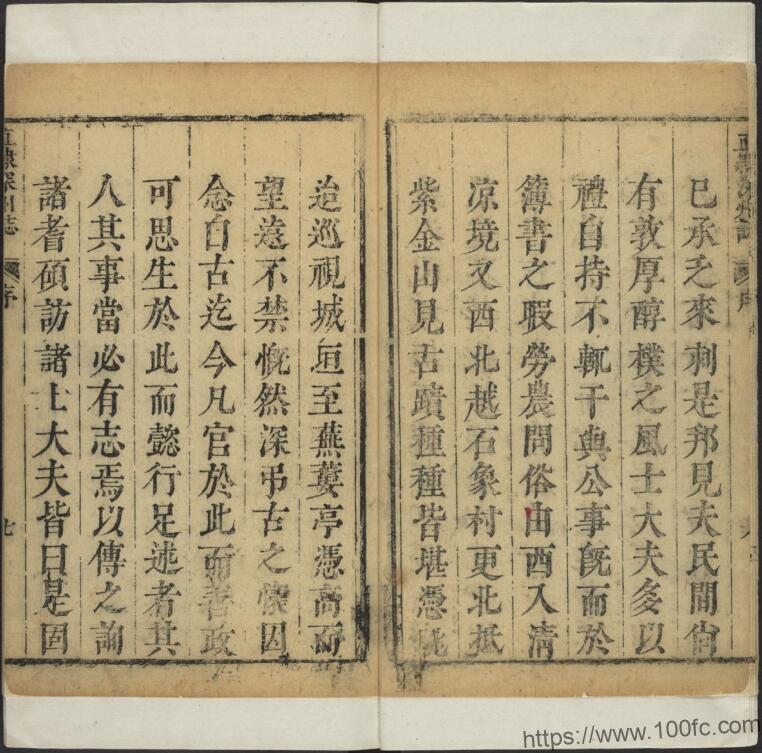 已承乏來刺是邦見夫民間尙
有敦厚醇樸之風士大夫多以
禮自持不輒干與公事旣而於
簿書之暇勞農問俗由西入清
凉境又西北越石象村更北抵
紫金山見古蹟種種皆堪憑眺
迨巡視城垣至蕪蔞亭憑高而
望遠不禁慨然深弔古之懷因
念自古迄今凡官於此而善政
可思生於此而懿行足述者其
人其事當必有志焉以傳之詢
諸耆碩訪諸士大夫皆曰是固
直隸深州志
序
七
https://www.100fc.com